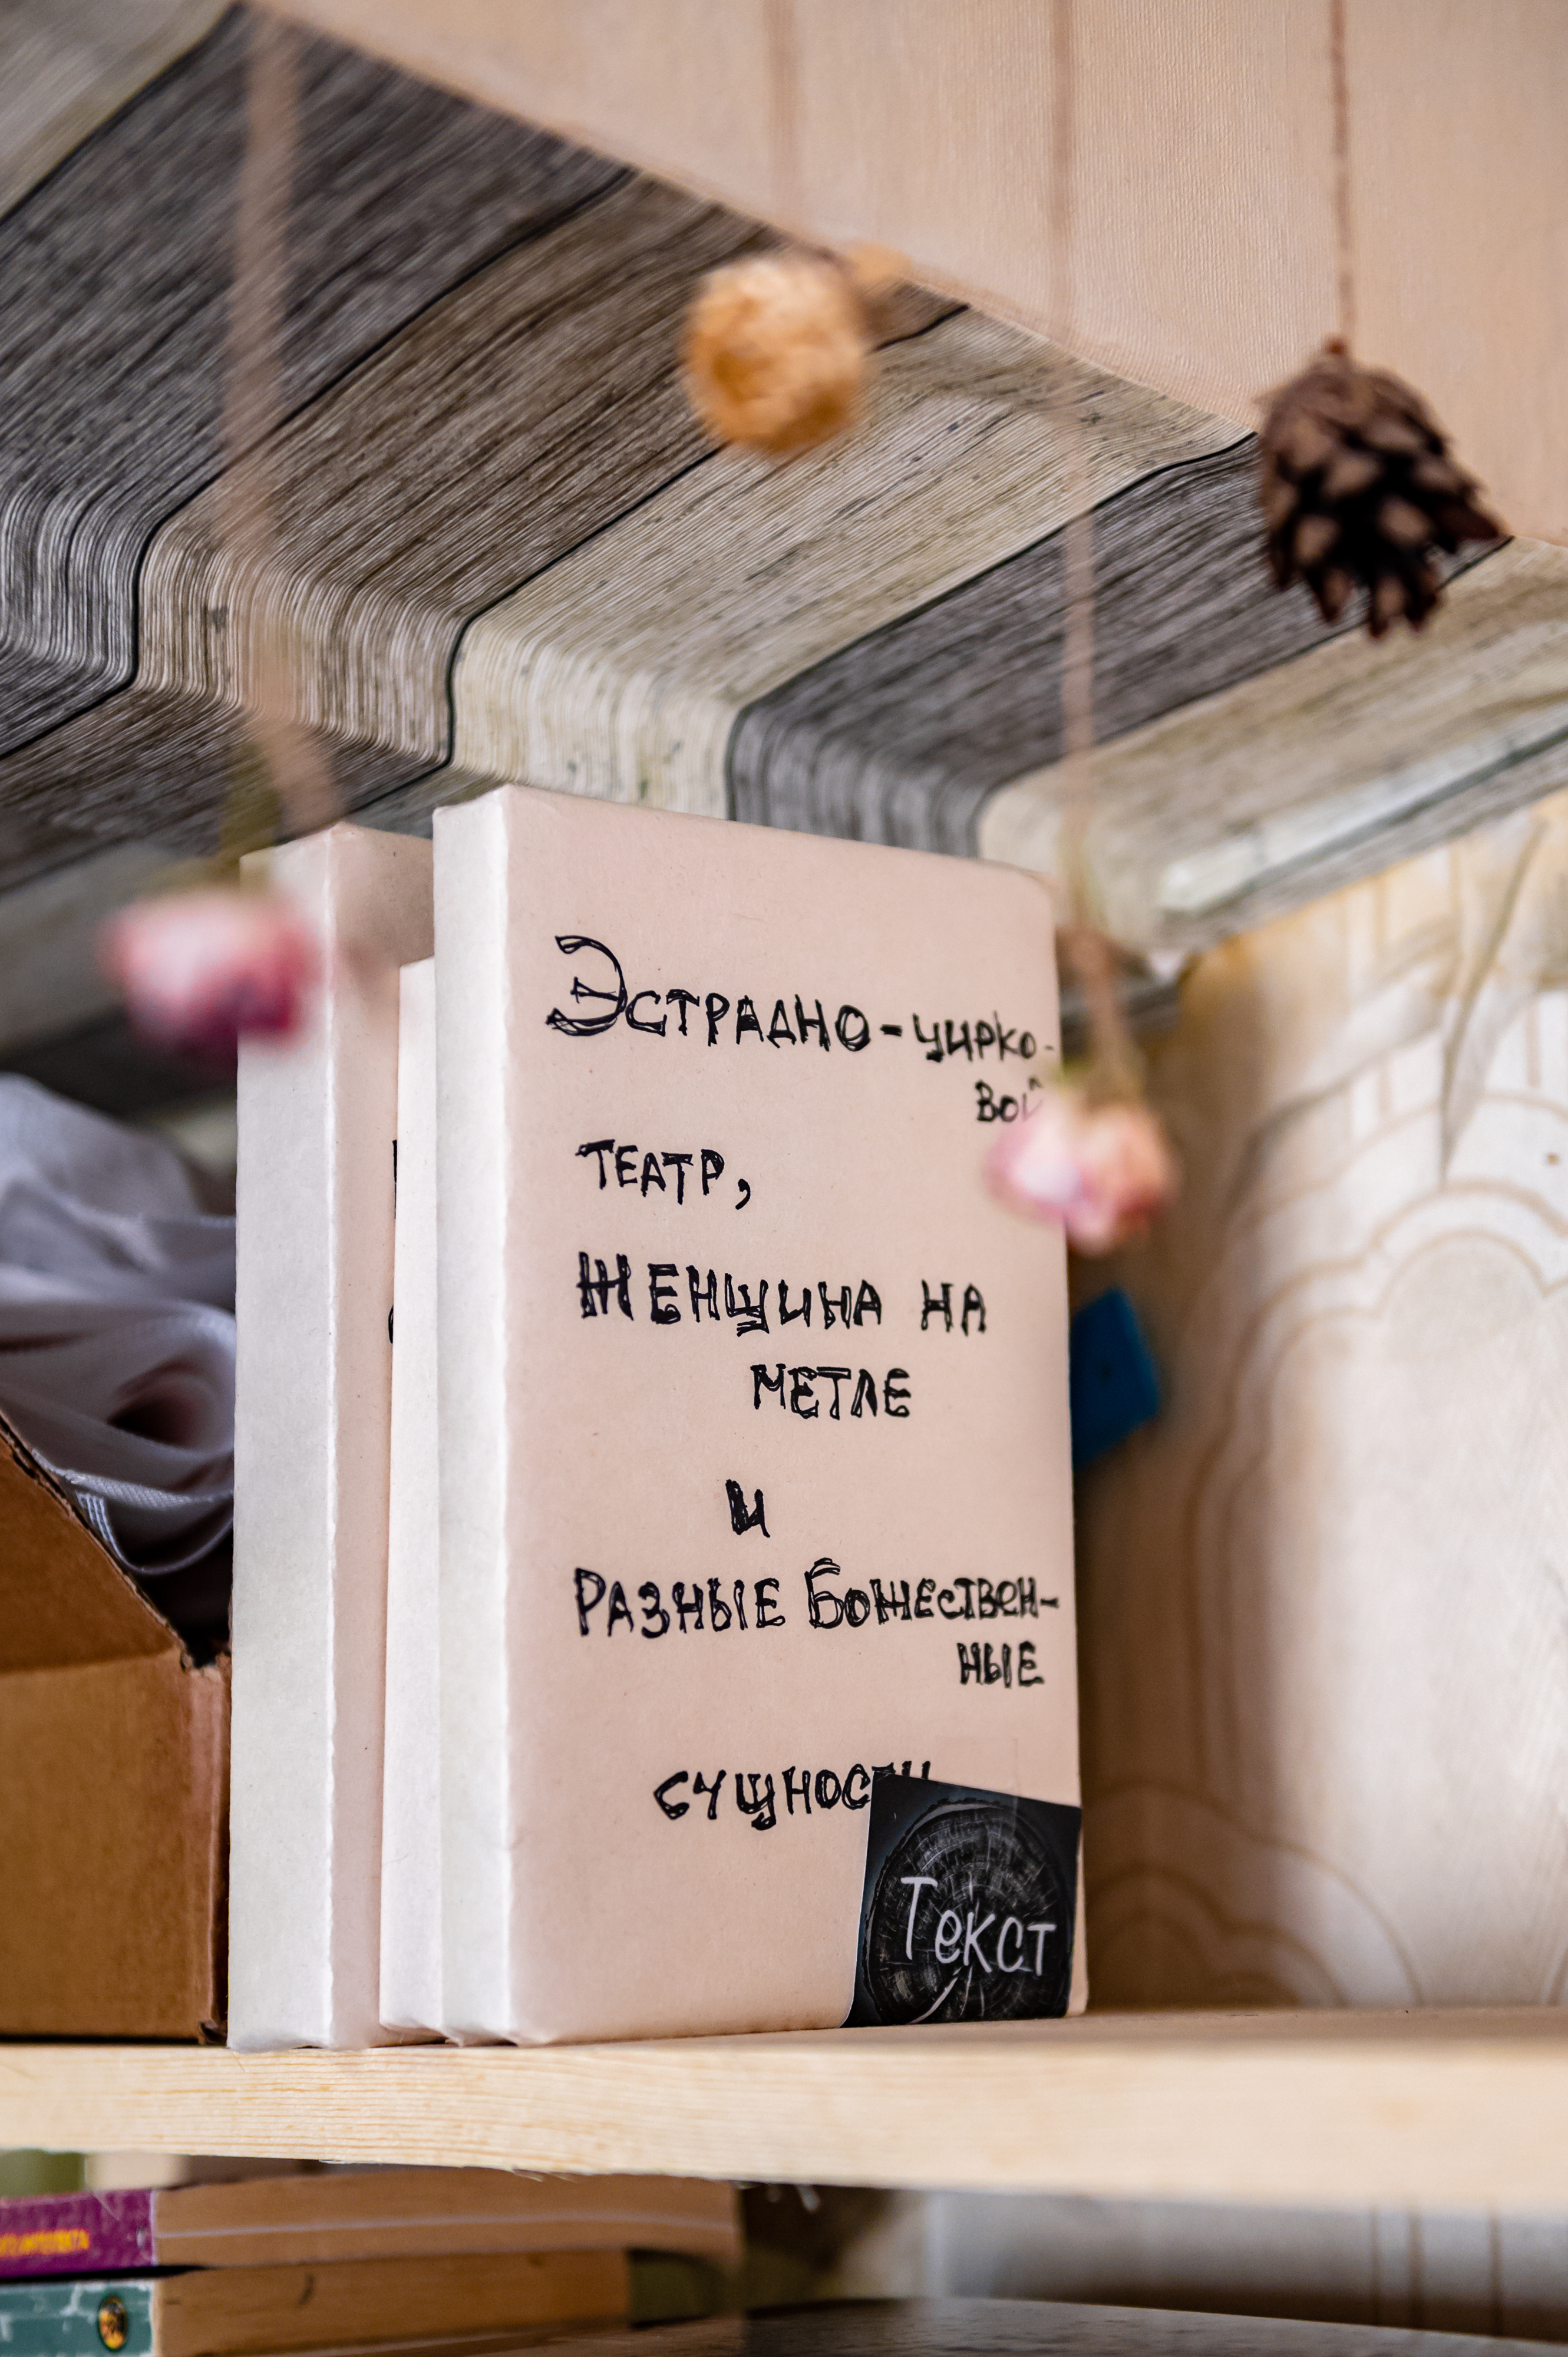 Эстрадно-цирко-
вой
ТЕАТР,
ЖЕНЩИНА НА
МЕТЛЕ
И
РАЗНЫЕ БОЖЕСТВЕН-
НЫЕ
Текст